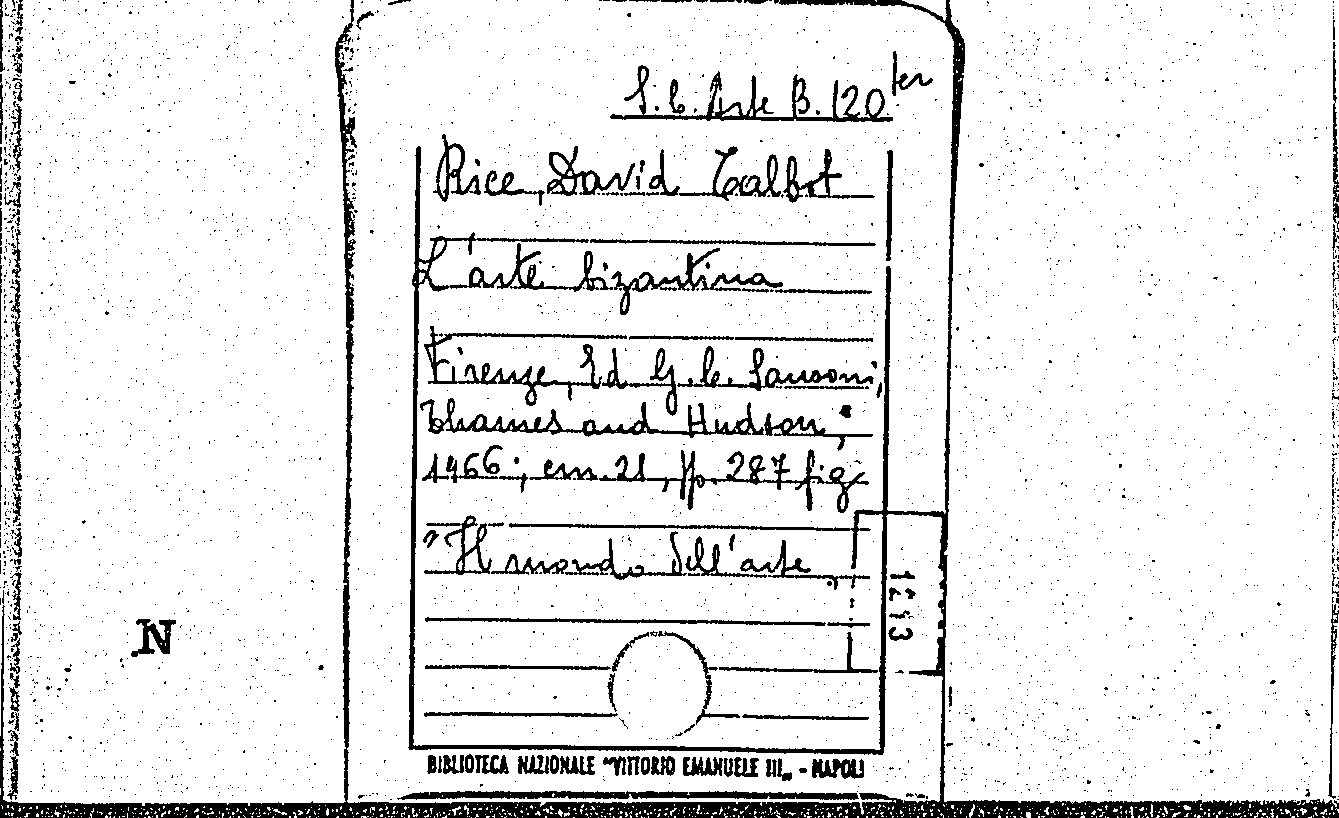 S.C. Arte B. 120 ter
Rice, David Talbot
L'arte bizantina
Firenze, Ed G.C. Sansoni,
Thames and Hudson,
1966; cm. 21, pp. 287 fig
"Il mondo dell'arte„
N
BIBLIOTECA NAZIONALE "VITTORIO EMANUELE III„ - NAPOLI